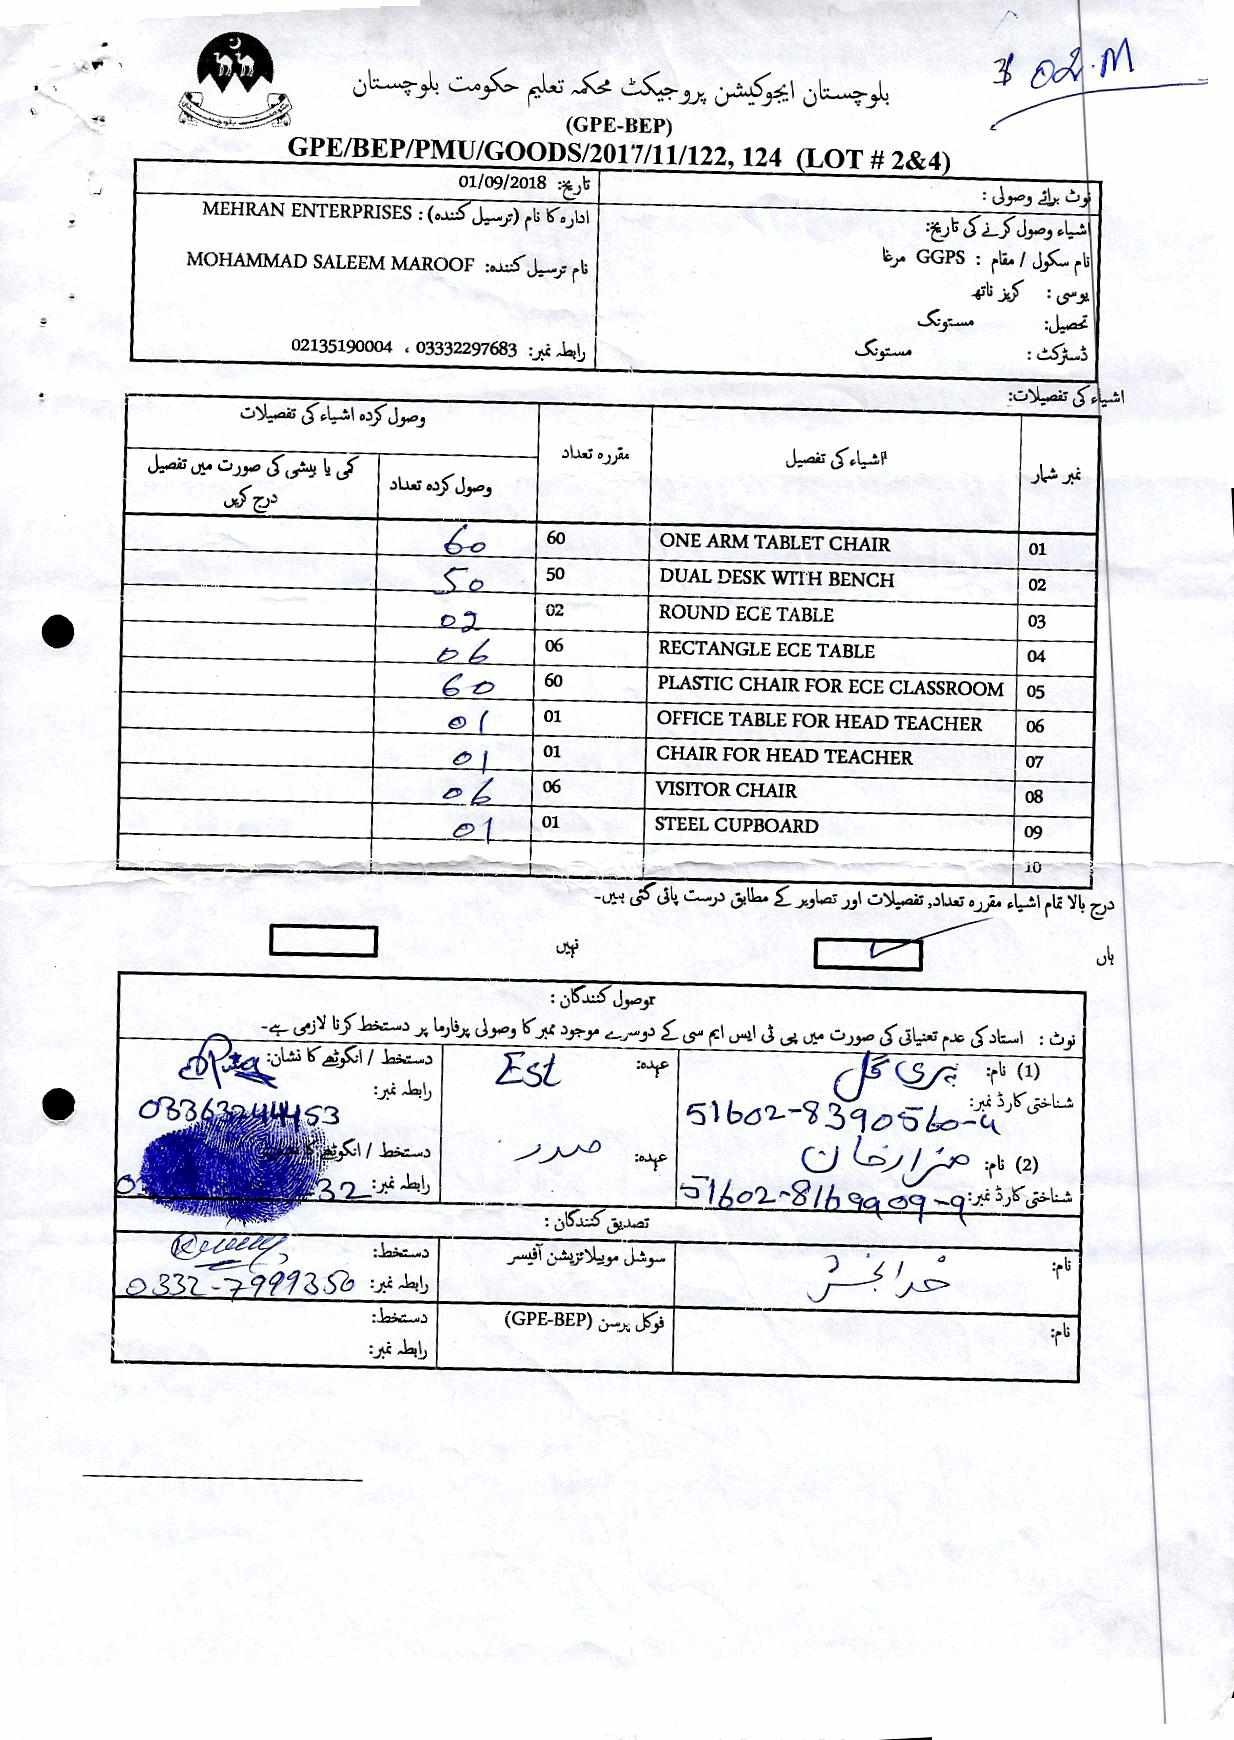 02-M
بلوچستان ایجوکیشن پروجیکٹ محکمہ تعلیم حکومت بلوچستان
(GPE-BEP)
GPE/BEP/PMU/GOODS/2017/11/122, 124 (LOT # 2&4)
نوٹ برائے وصولی :
تاریخ: 01/09/2018
اشیاء وصول کرنے کی تاریخ:
ادارہ کا نام (ترسیل کنندہ) : MEHRAN ENTERPRISES
نام سکول / مقام : GGPS مرغا
نام ترسیل کنندہ: MOHAMMAD SALEEM MAROOF
یوسی : کریز ناتھ
تحصیل: مستونگ
ڈسٹرکٹ : مستونگ
رابطہ نمبر: 03332297683 ، 02135190004
اشیاء کی تفصیلات:
نمبر شمار اشیاء کی تفصیل مقررہ تعداد وصول کردہ اشیاء کی تفصیلات
وصول کردہ تعداد کمی یا بیشی کی صورت میں تفصیل درج کریں
01 ONE ARM TABLET CHAIR 60 60
02 DUAL DESK WITH BENCH 50 50
03 ROUND ECE TABLE 02 02
04 RECTANGLE ECE TABLE 06 06
05 PLASTIC CHAIR FOR ECE CLASSROOM 60 60
06 OFFICE TABLE FOR HEAD TEACHER 01 01
07 CHAIR FOR HEAD TEACHER 01 01
08 VISITOR CHAIR 06 06
09 STEEL CUPBOARD 01 01
10
درج بالا تمام اشیاء مقررہ تعداد, تفصیلات اور تصاویر کے مطابق درست پائی گئی ہیں۔
ہاں نہیں
وصول کنندگان :
نوٹ : استاد کی عدم تعنیاتی کی صورت میں پی ٹی ایس ایم سی کے دوسرے موجود ممبر کا وصولی پرفارما پر دستخط کرنا لازمی ہے۔
(1) نام: پری گل عہدہ: Est دستخط / انگوٹھے کا نشان:
شناختی کارڈ نمبر: 51602-8390560-4 رابطہ نمبر: 03363244453
(2) نام: ہزار خان عہدہ: صدر دستخط / انگوٹھے کا نشان:
شناختی کارڈ نمبر: 51602-8169909-9 رابطہ نمبر: 32
تصدیق کنندگان :
نام: خدابخش سوشل موبیلائزیشن آفیسر دستخط:
رابطہ نمبر: 0332-7999350
نام: فوکل پرسن (GPE-BEP) دستخط:
رابطہ نمبر: